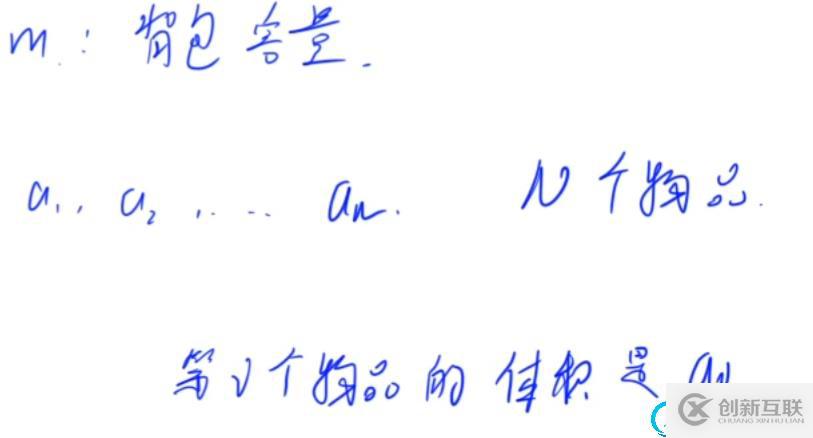 m: 背包容量.
a₁, a₂, .... aₙ. N个物品.
第i个物品的体积是 aᵢ
创新互联
CHUANG XIN HU LIAN